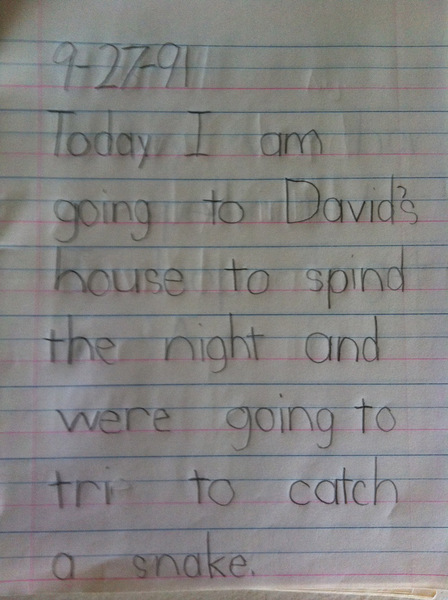 9-27-91
Today I am
going to David's
house to spind
the night and
were going to
tri to catch
a snake.